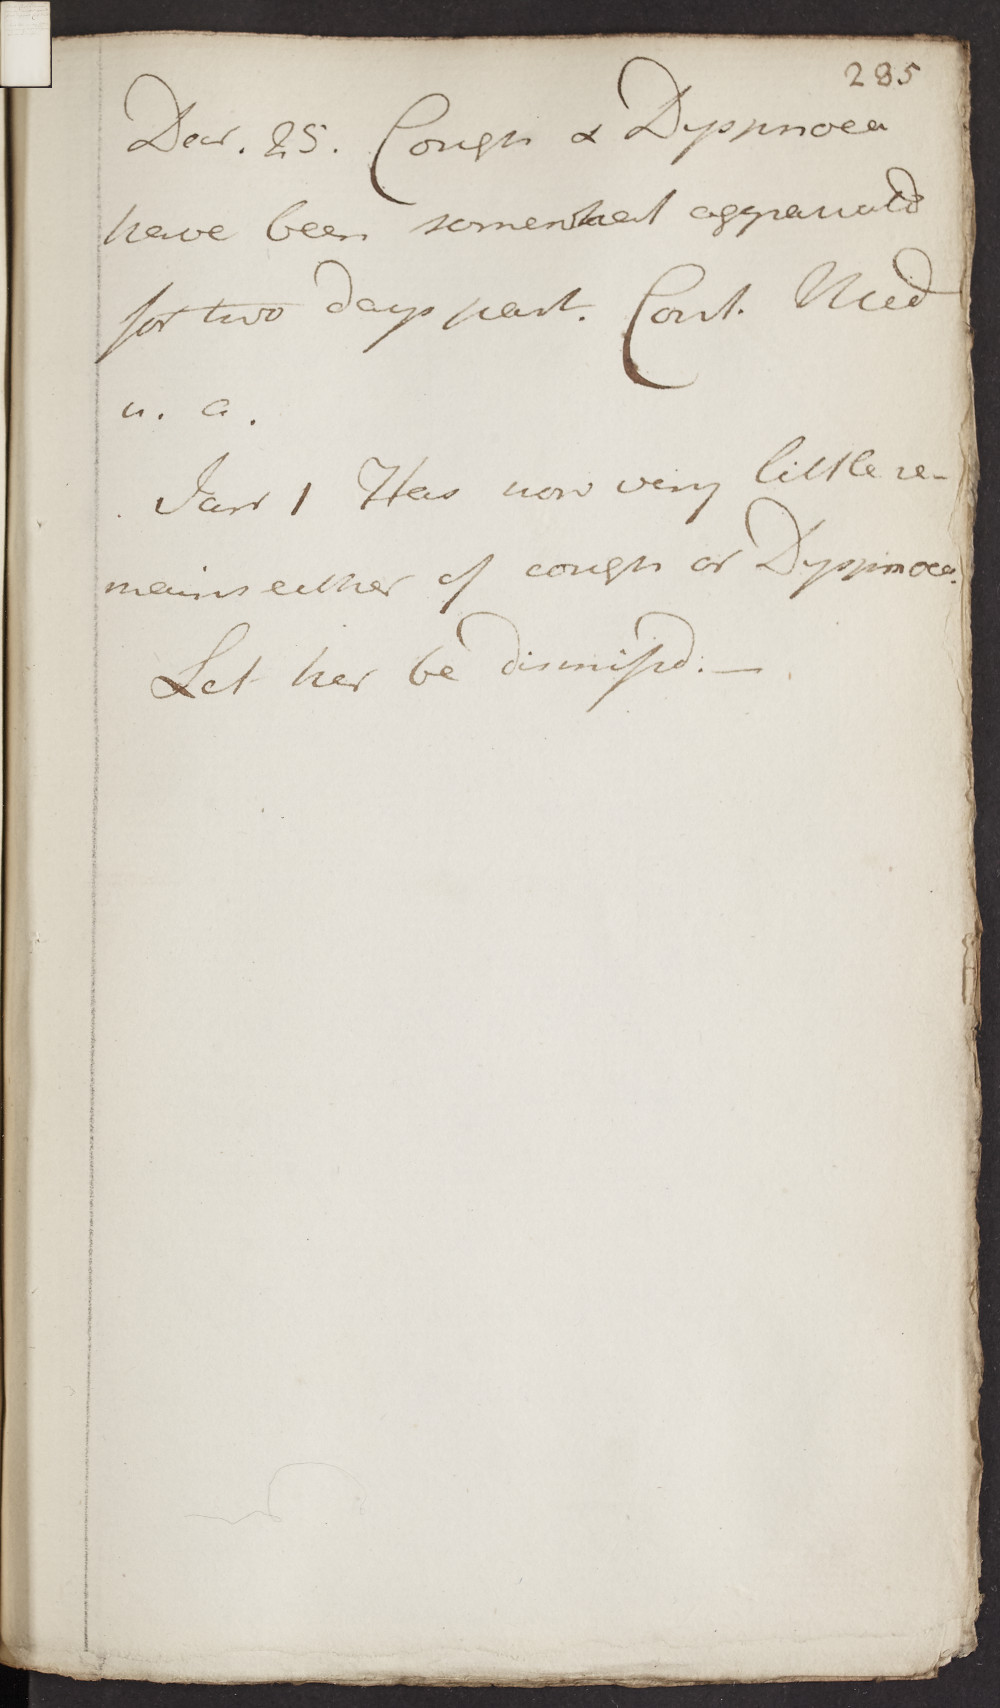 285
Decr. 25. Cough & Dyspnoea
have been somewhat aggravatd
for two days past. Cont. Med
u. a.
Janr 1 Has now very little re-
mains either of cough or Dyspnoea.
Let her be dismissd. —